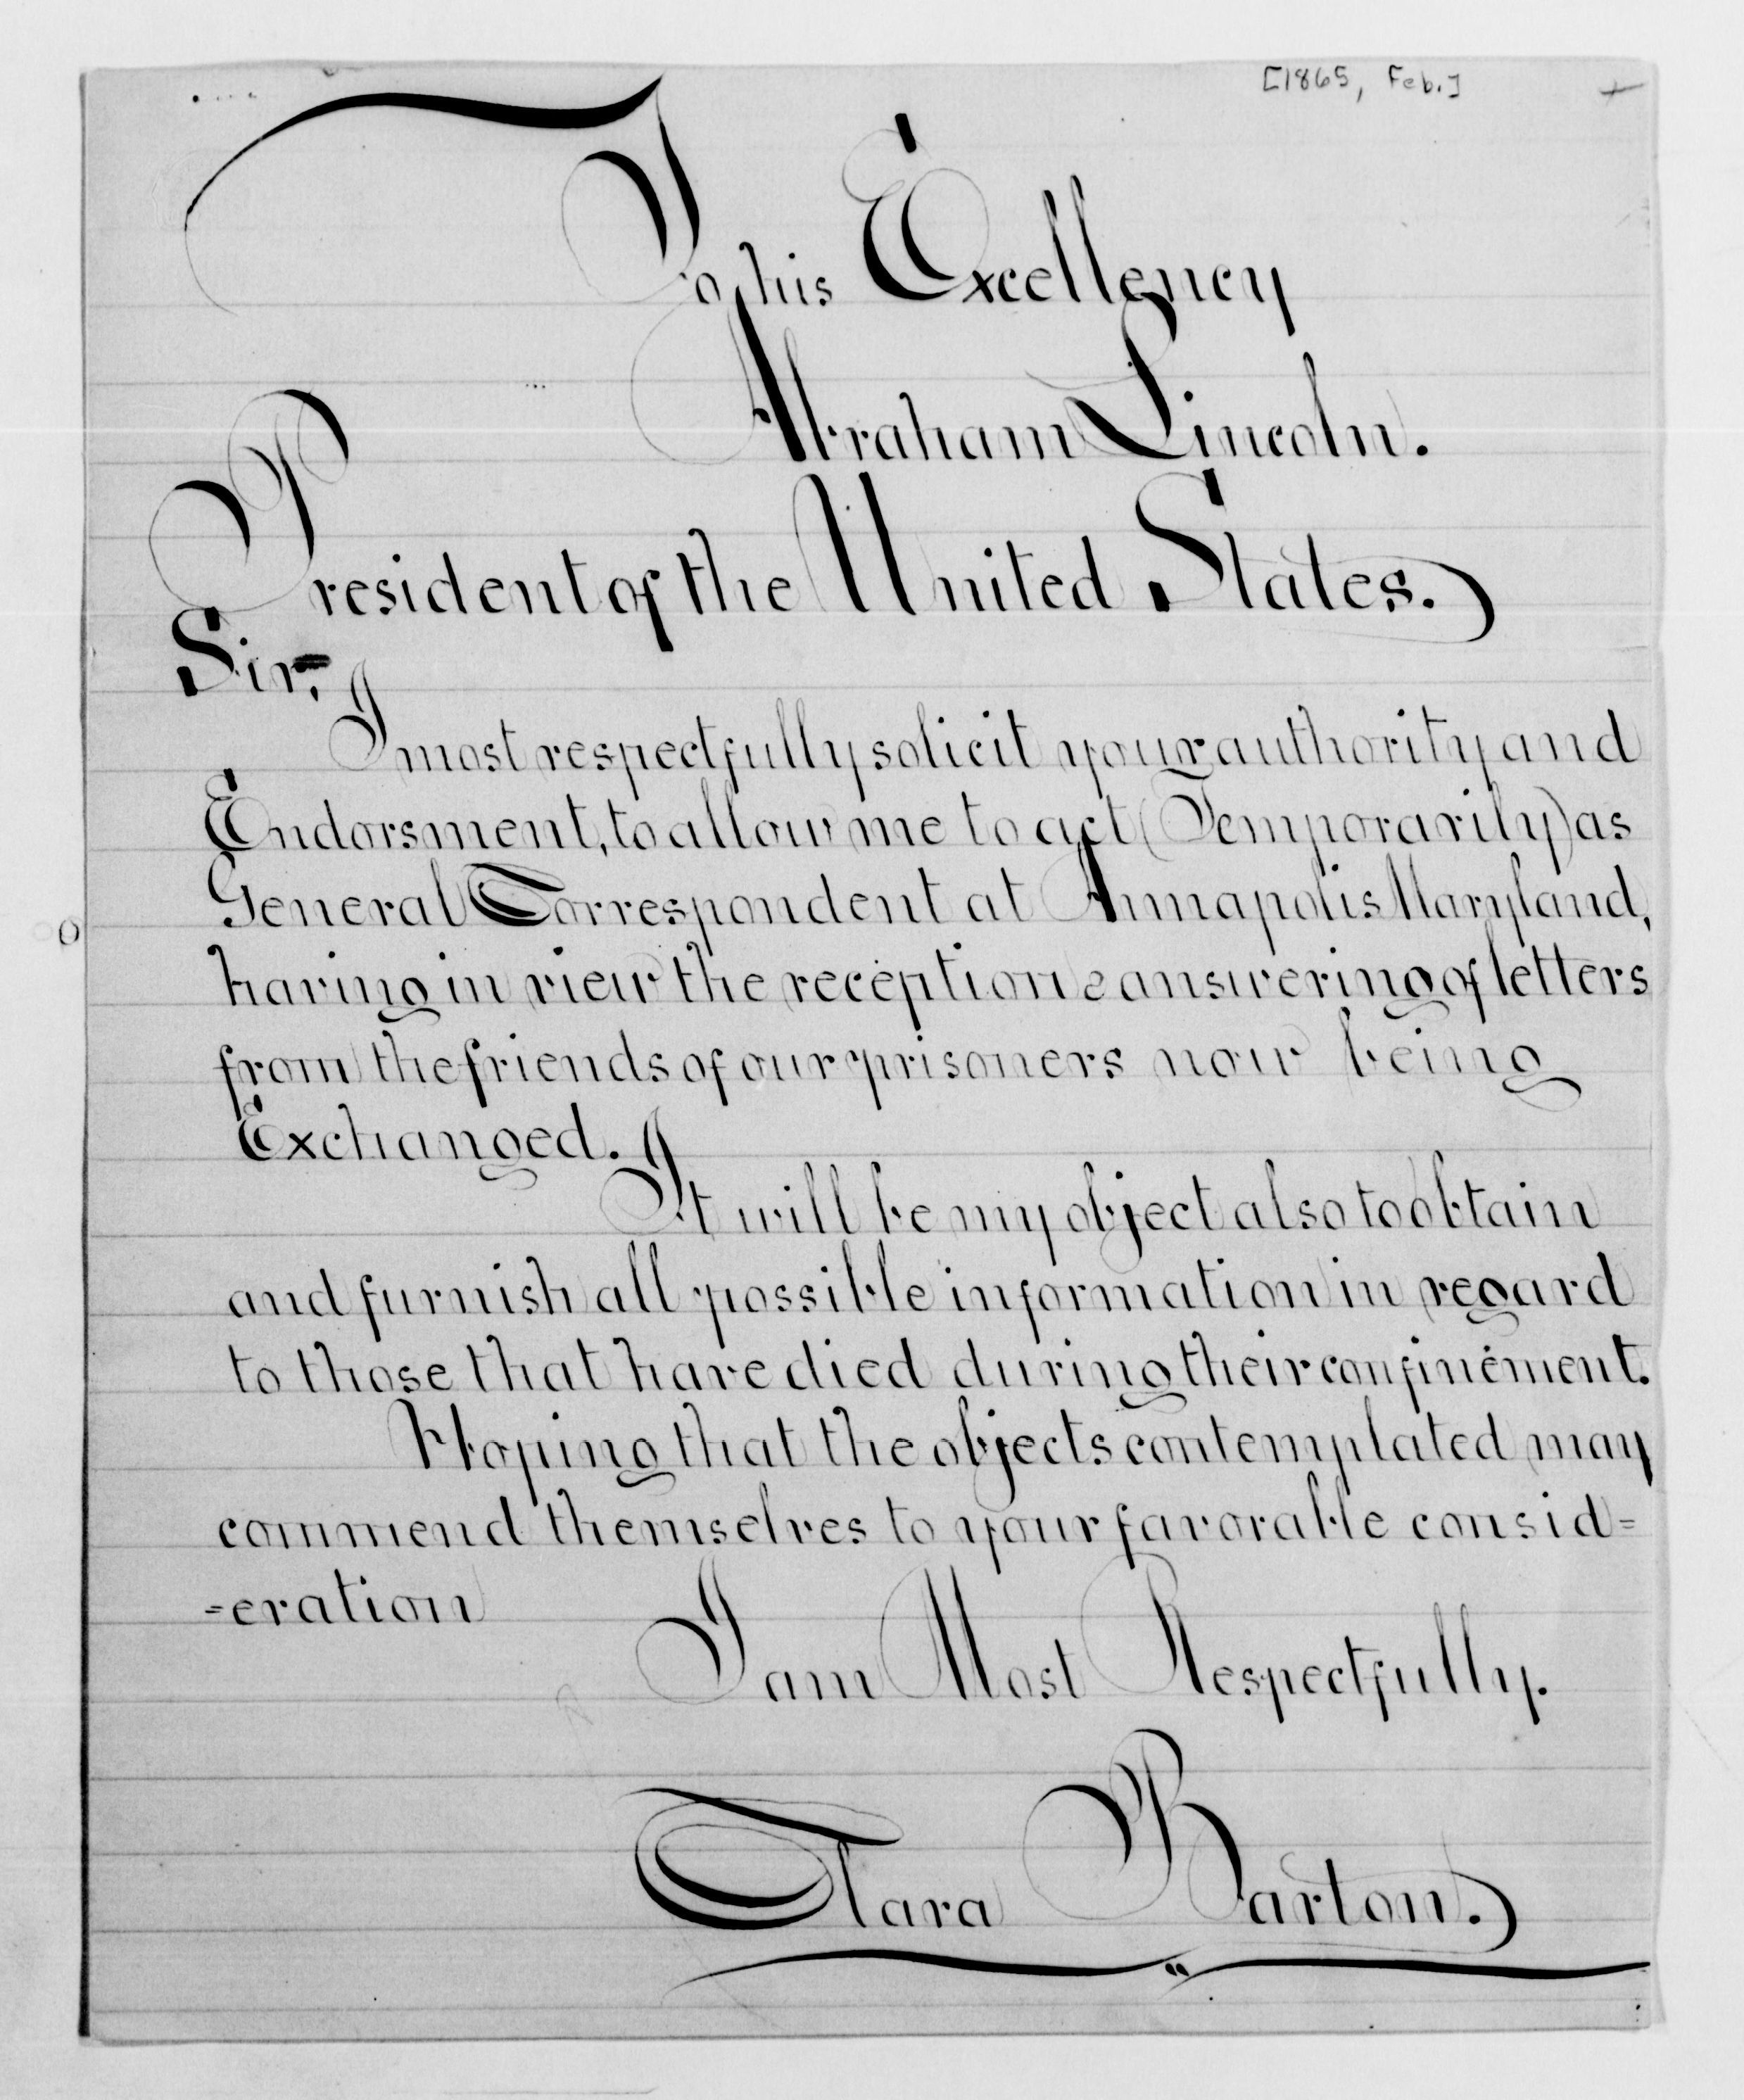 [1865, Feb.]
To his Excellency
Abraham Lincoln.
President of the United States.
Sir,
I most respectfully solicit your authority and
Endorsment, to allow me to act (Temporarily) as
General Correspondent at Annapolis Maryland,
having in view the reception & answering of letters
from the friends of our prisoners now being
Exchanged.
It will be my object also to obtain
and furnish all possible information in regard
to those that have died during their confinement.
Hoping that the objects contemplated may
commend themselves to your favorable consid=
=eration
I am Most Respectfully.
Clara Barton.